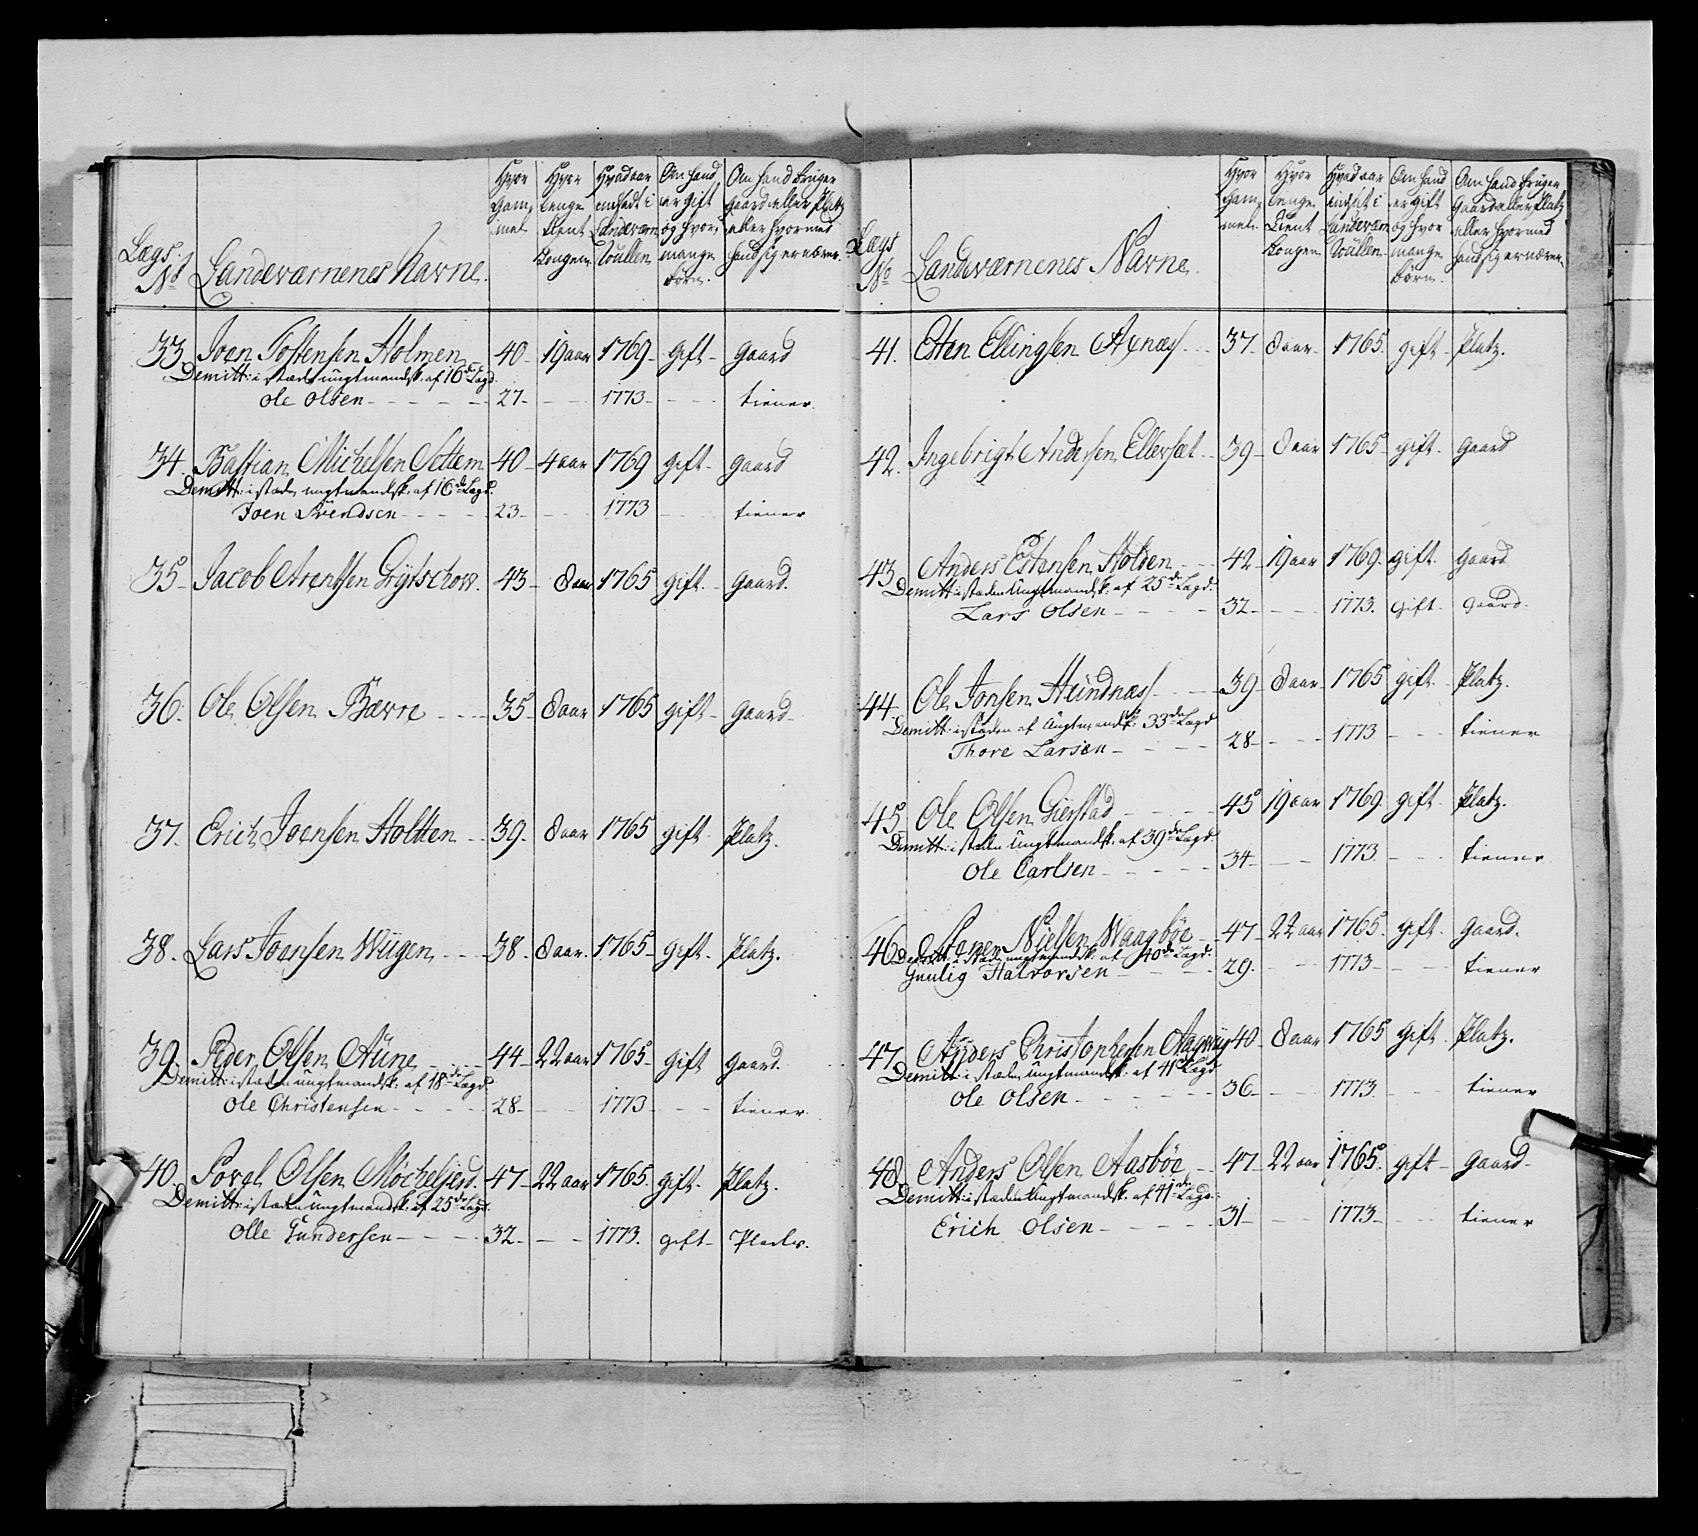 Lægs No
Landeværnenes Navne.
Hvor gammel
Hvor lenge tient Kongen
Hvad aar indsadt i Landeværn Roullen
Om hand er gift og hvor mange børn.
Om hand bruger gaard eller Platz eller hvormed hand sig ernærer.
33. Joen Tostensen Holmen 40 - 19 aar 1769 - gift - gaard
Demitt: i stæden ungtmandsk. af 16de Lægd.
Ole Olsen - 27 - 1773 - tiener.
34. Bastian Michelsen Settem 40 - 4 aar 1769 gift - gaard
Demitt: i stæden ungtmandsk. af 16de Lægd.
Joen Svendsen - 23 - 1773 - tiener
35 - Jacob Arentsen 43 - 8 aar 1765 gift - gaard.
36. Ole Olsen Bævre - 35 - 8 aar 1765 gift - gaard -
37. Erich Joensen Holtten - 39. 8 aar 1765 gift - Platz.
38. Lars Joensen Wiigen - 38 - 8 aar - 1765 - gift - Platz.
39. Peder Olsen Aune - 44 - 22 aar 1765 - gift gaard.
Demitt: i stæden ungtmandsk. af 18de Lægd.
Ole Christensen - 28 - 1773 - tiener.
40. Povel Olsen 47 - 22 aar 1765. gift. Platz.
Demitt: i stæden ungtmandsk. af 25de Lægd.
Olle Gundersen - 32 - 1773. gift -
Lægs No
Landeværnenes Navne.
Hvor gammel
Hvor lenge tient Kongen
Hvad aar indsat i Landeværn Roullen
Om hand er gift og hvor mange børn.
Om hand bruger Gaard eller Platz eller hvormed hand sig ernærer.
41. Esten Ellingsen 37 - 8 aar - 1765. gift - Platz.
42. Ingebrigt Andersen Ellersæt - 39 - 8 aar 1765 - gift - gaard
43. Anders Estensen Holden - 42 - 19 aar 1769. gift. gaard
Demitt: i stæden Ungtmandsk. af 25de Lægd.
Lars Olsen - 32 - 1773. gift - gaard.
44. Ole Jonsen Hundnæs - 39 - 8 aar - 1765 gift - Platz.
Demitt: i stæden af Ungtmandsk. 33de Lægd
Thore Larsen - 28 - 1773 - tiener
45. Ole Olsen Gierstad - 45 19 aar 1769 gift - Platz.
Demitt: i stæden Ungtmandsk. af 39de Lægd.
Ole Carlsen - 34 - 1773. - tiener
46. Nielsen Waagbøe - 47 - 22 aar 1765. gift. gaard.
Demitt: i stæden ungtmandsk. af 40de Lægd.
Gunlig Halvorsen - 29. - 1773 - tiener
47. Anders Christophersen 40 - 8 aar 1765 gift. Platz.
Demitt: i stæden Ungtmandsk. af 41de Lægd
Ole Olsen - 36 - 1773. - tiener
48. Anders Olsen Aasbøe - 47 22 aar 1765. gift - gaard -
Demitt: i stæden Ungtmandsk. af 41de Lægd.
Erich Olsen - 31 - 1773 - tiener